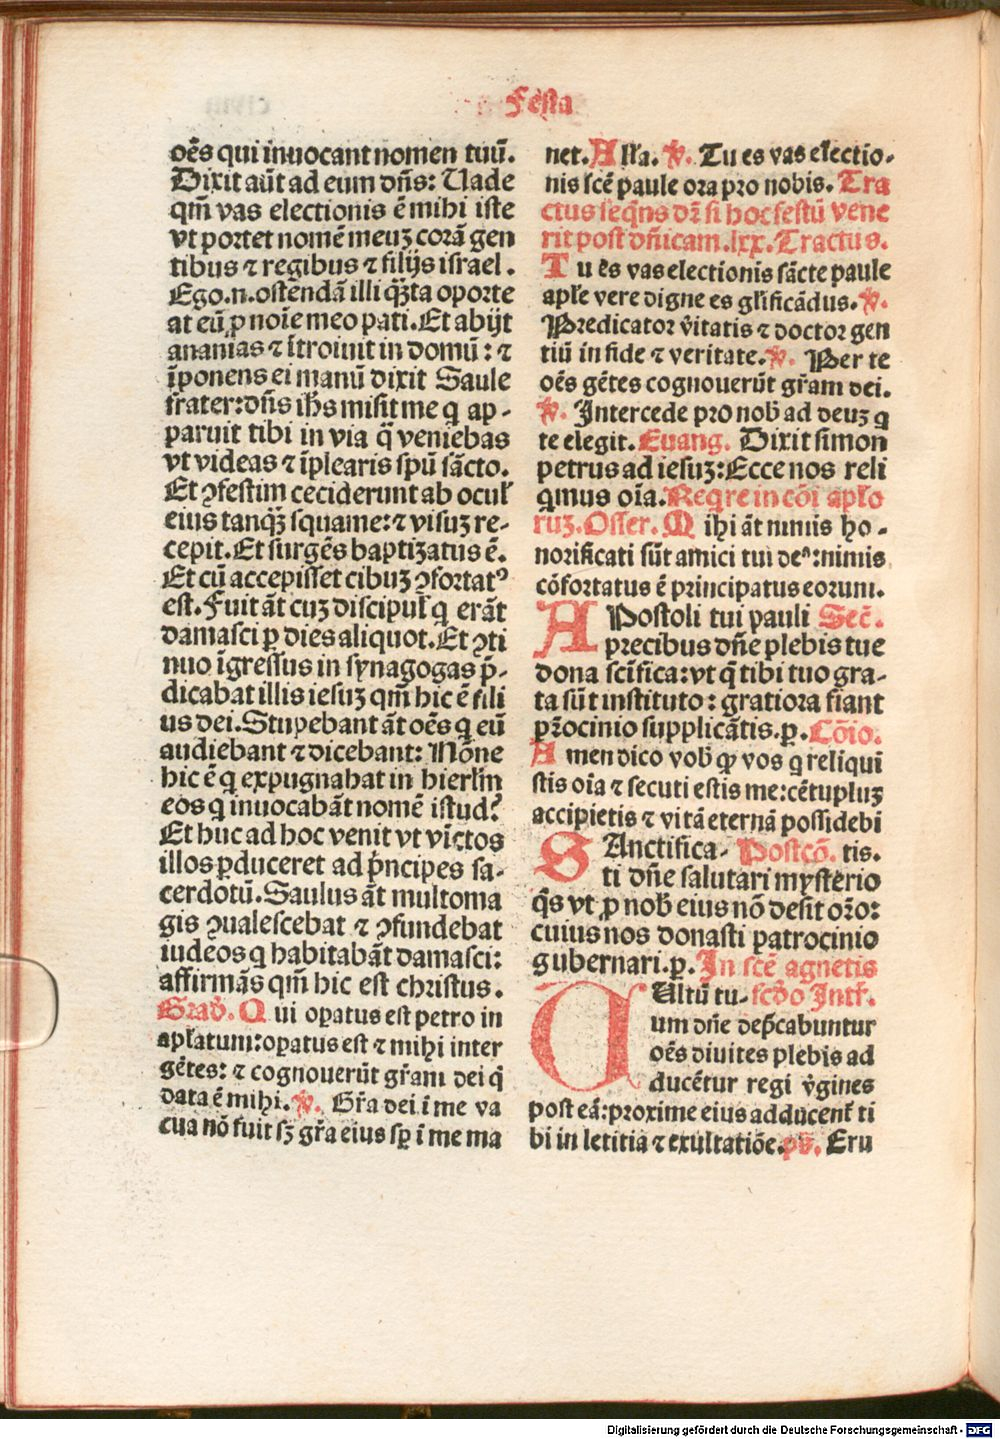 Festa
oēs qui inuocant nomen tuū.
Dixit aūt ad eum dn̄s: Uade
qm̄ vas electionis ē mihi iste
vt portet nomē meuꝫ corā gen
tibus ⁊ regibus ⁊ filijs israel.
Ego.n.ostendā illi qꝫ̄ta oporte
at eū ꝓ noīe meo pati. Et abijt
ananias ⁊ ītroiuit in domū: ⁊
īponens ei manū dixit Saule
frater: dn̄s ihs̄ misit me q ap-
paruit tibi in via q̄ veniebas
vt videas ⁊ īplearis spū sācto.
Et ꝯfestim ceciderunt ab ocul̕
eius tanqꝫ̄ squame: ⁊ visuꝫ re-
cepit. Et surgēs baptizatus ē.
Et cū accepisset cibuꝫ ꝯfortatꝰ
est. Fuit āt cuꝫ discipul̕ q erāt
damasci ꝑ dies aliquot. Et ꝯti
nuo īgressus in synagogas p̄-
dicabat illis iesuꝫ qm̄ hic ē fili
us dei. Stupebant āt oēs q eū
audiebant ⁊ dicebant: Nōne
hic ē q expugnabat in hierlm̄
eos q inuocabāt nomē istud?
Et huc ad hoc venit vt vīctos
illos ꝑduceret ad p̄ncipes sa-
cerdotū. Saulus āt multo ma
gis ꝯualescebat ⁊ ꝯfundebat
iudeos q habitabāt damasci:
affirmās qm̄ hic est christus.
Grad̕. Qui opatus est petro in
apl̕atum: opatus est ⁊ mihi inter
gētes: ⁊ cognouerūt gr̄am dei q̄
data ē mihi. ℣. Gr̄a dei ī me va
cua nō fuit sꝫ gr̄a eius sꝑ ī me ma
net. All̕a. ℣. Tu es vas electio-
nis scē paule ora pro nobis. Tra
ctus seq̄ns dr̄ si hoc festū vene
rit post dn̄icam.lxx. Tractus.
Tu es vas electionis sācte paule
apl̕e vere digne es gl̕ificādus. ℣.
Predicator v̄itatis ⁊ doctor gen
tiū in fide ⁊ veritate. ℣. Per te
oēs gētes cognouerūt gr̄am dei.
℣. Intercede pro nob̕ ad deuꝫ q
te elegit. Euang. Dixit simon
petrus ad iesuꝫ: Ecce nos reli
qmus oīa. Reqre in cōi apl̕o
ruꝫ. Offer. Mihi āt nimis ho-
norificati sūt amici tui deꝰ: nimis
cōfortatus ē principatus eorum.
APostoli tui pauli Sec̄.
precibus dn̄e plebis tue
dona scīfica: vt q̄ tibi tuo gra-
ta sūt instituto: gratiora fiant
pr̄ocinio supplicātis.ꝑ. Cōio.
Amen dico vob̕ ꝙ vos q reliqui
stis oīa ⁊ secuti estis me: cētupluꝫ
accipietis ⁊ vitā eternā possidebi
SAnctifica- Postcō. tis.
ti dn̄e salutari mysterio
q̄s vt ꝓ nob̕ eius nō desit or̄o:
cuius nos donasti patrocinio
gubernari.ꝑ. In scē agnetis
Ultū tu- scd̄o Intr̄.
um dn̄e dep̄cabuntur
oēs diuites plebis ad
ducētur regi v̄gines
post eā: proxime eius adducent̄ ti
bi in letitia ⁊ exultatiōe. ps̄. Eru
Digitalisierung gefördert durch die Deutsche Forschungsgemeinschaft - DFG